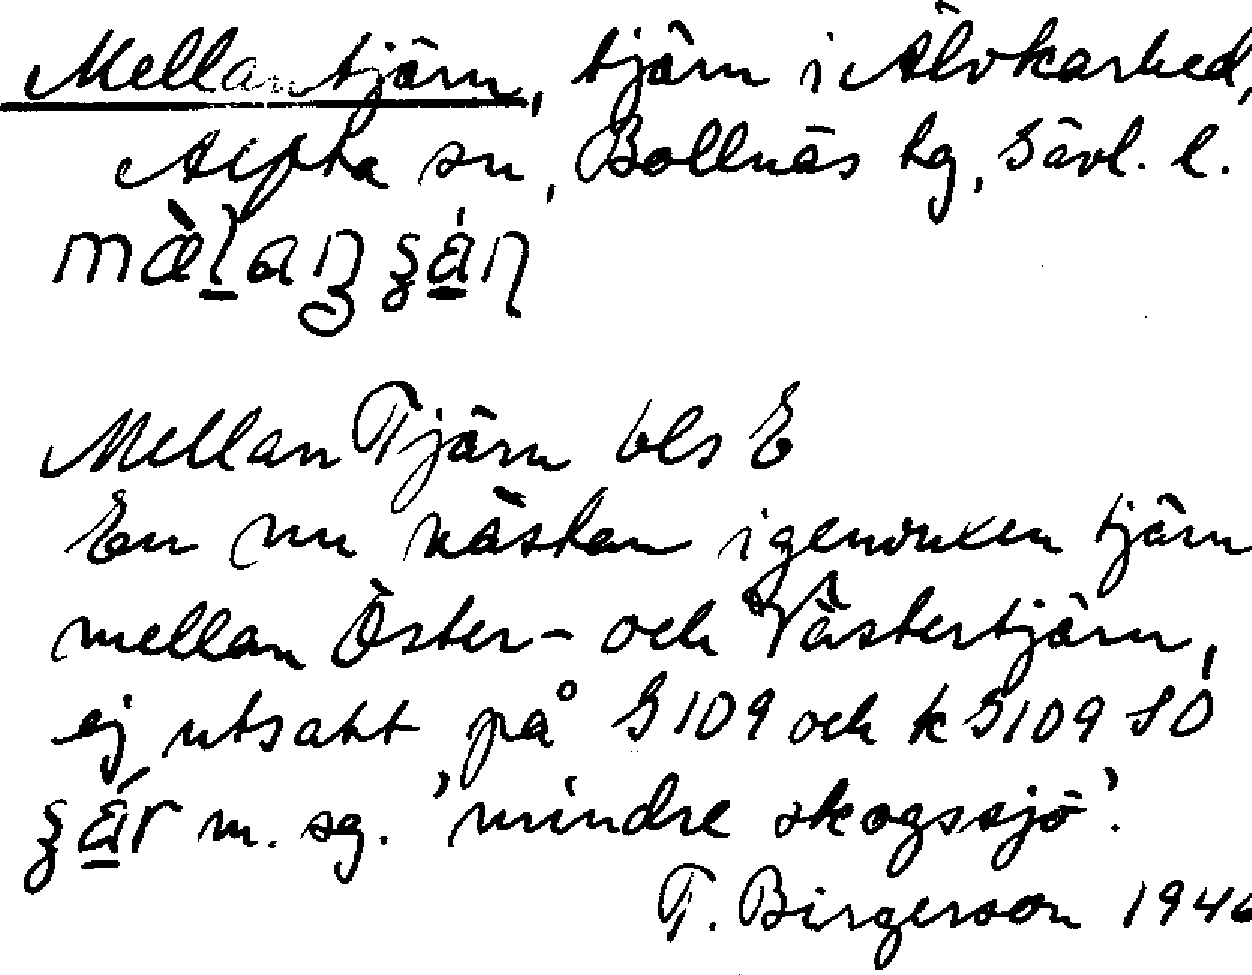 Mellantjärn, tjärn i Älvkarhed,
Alfta sn, Bollnäs tg, Gävl. l.
Mellan Tjärn bls E
En nu nästan igenvuxen tjärn
mellan Öster- och Västertjärn,
ej utsatt på G 109 och k G 109 SO
m. sg. 'mindre skogssjö'.
T. Birgerson 1946